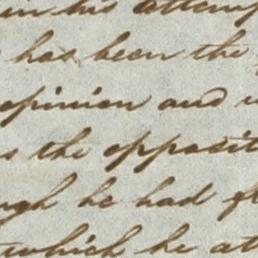 in his attemp
has been the
opinion and
s the opposit
ugh he had
which he at